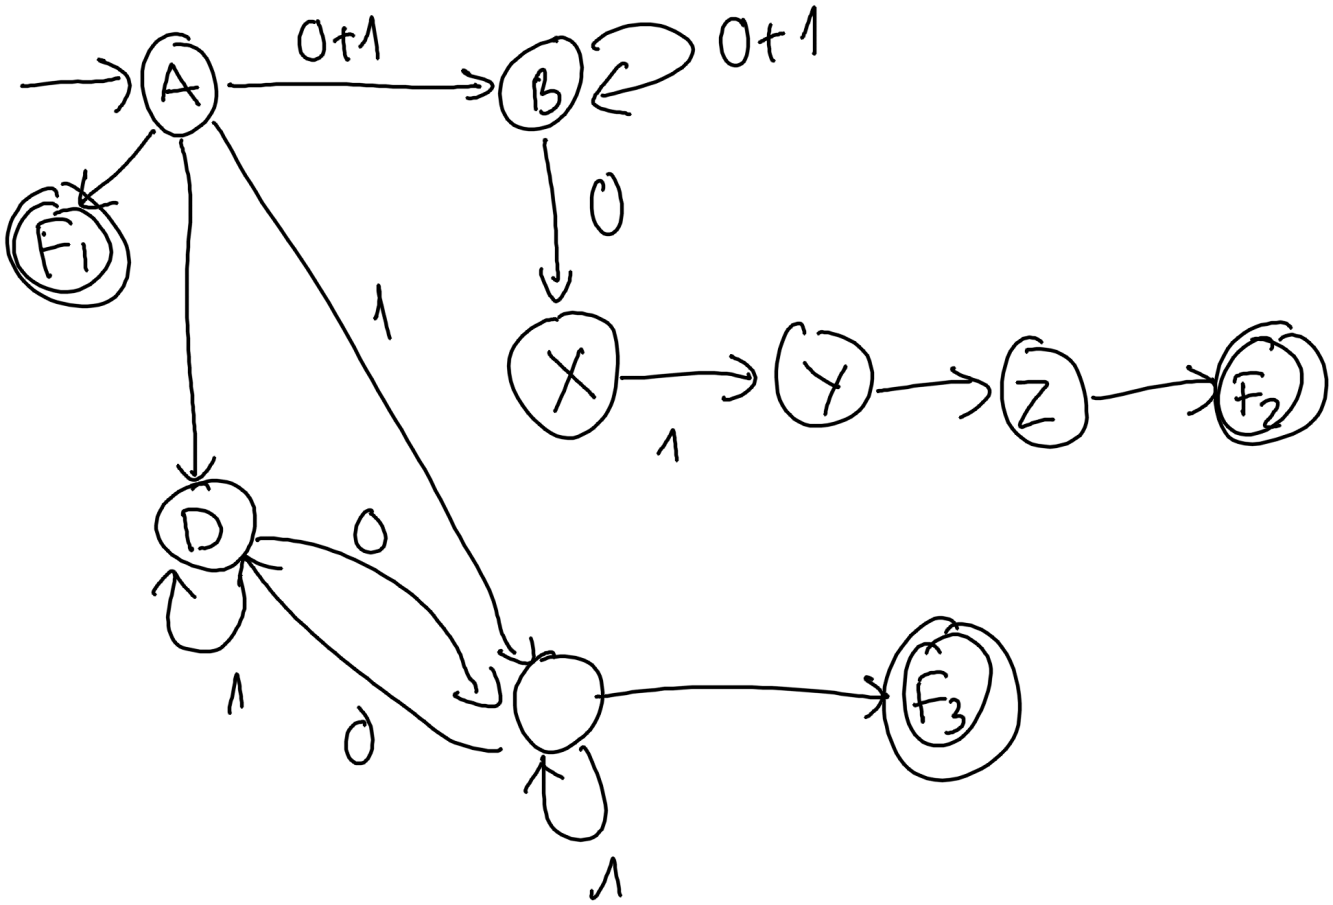 0+1
A
B
0+1
F1
0
1
X
Y
Z
F2
1
D
0
1
0
F3
1